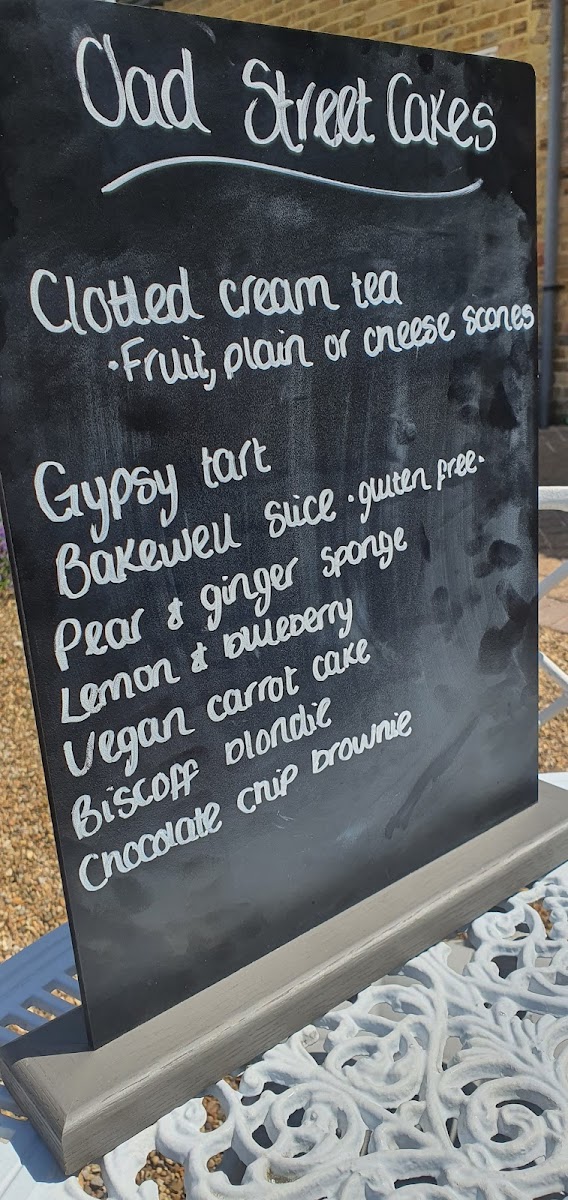 Oad Street Cakes
Clotted cream tea
·Fruit, plain or cheese scones
Gypsy tart
Bakewell slice ·gluten free·
Pear & ginger sponge
Lemon & blueberry
Vegan carrot cake
Biscoff blondie
Chocolate chip brownie